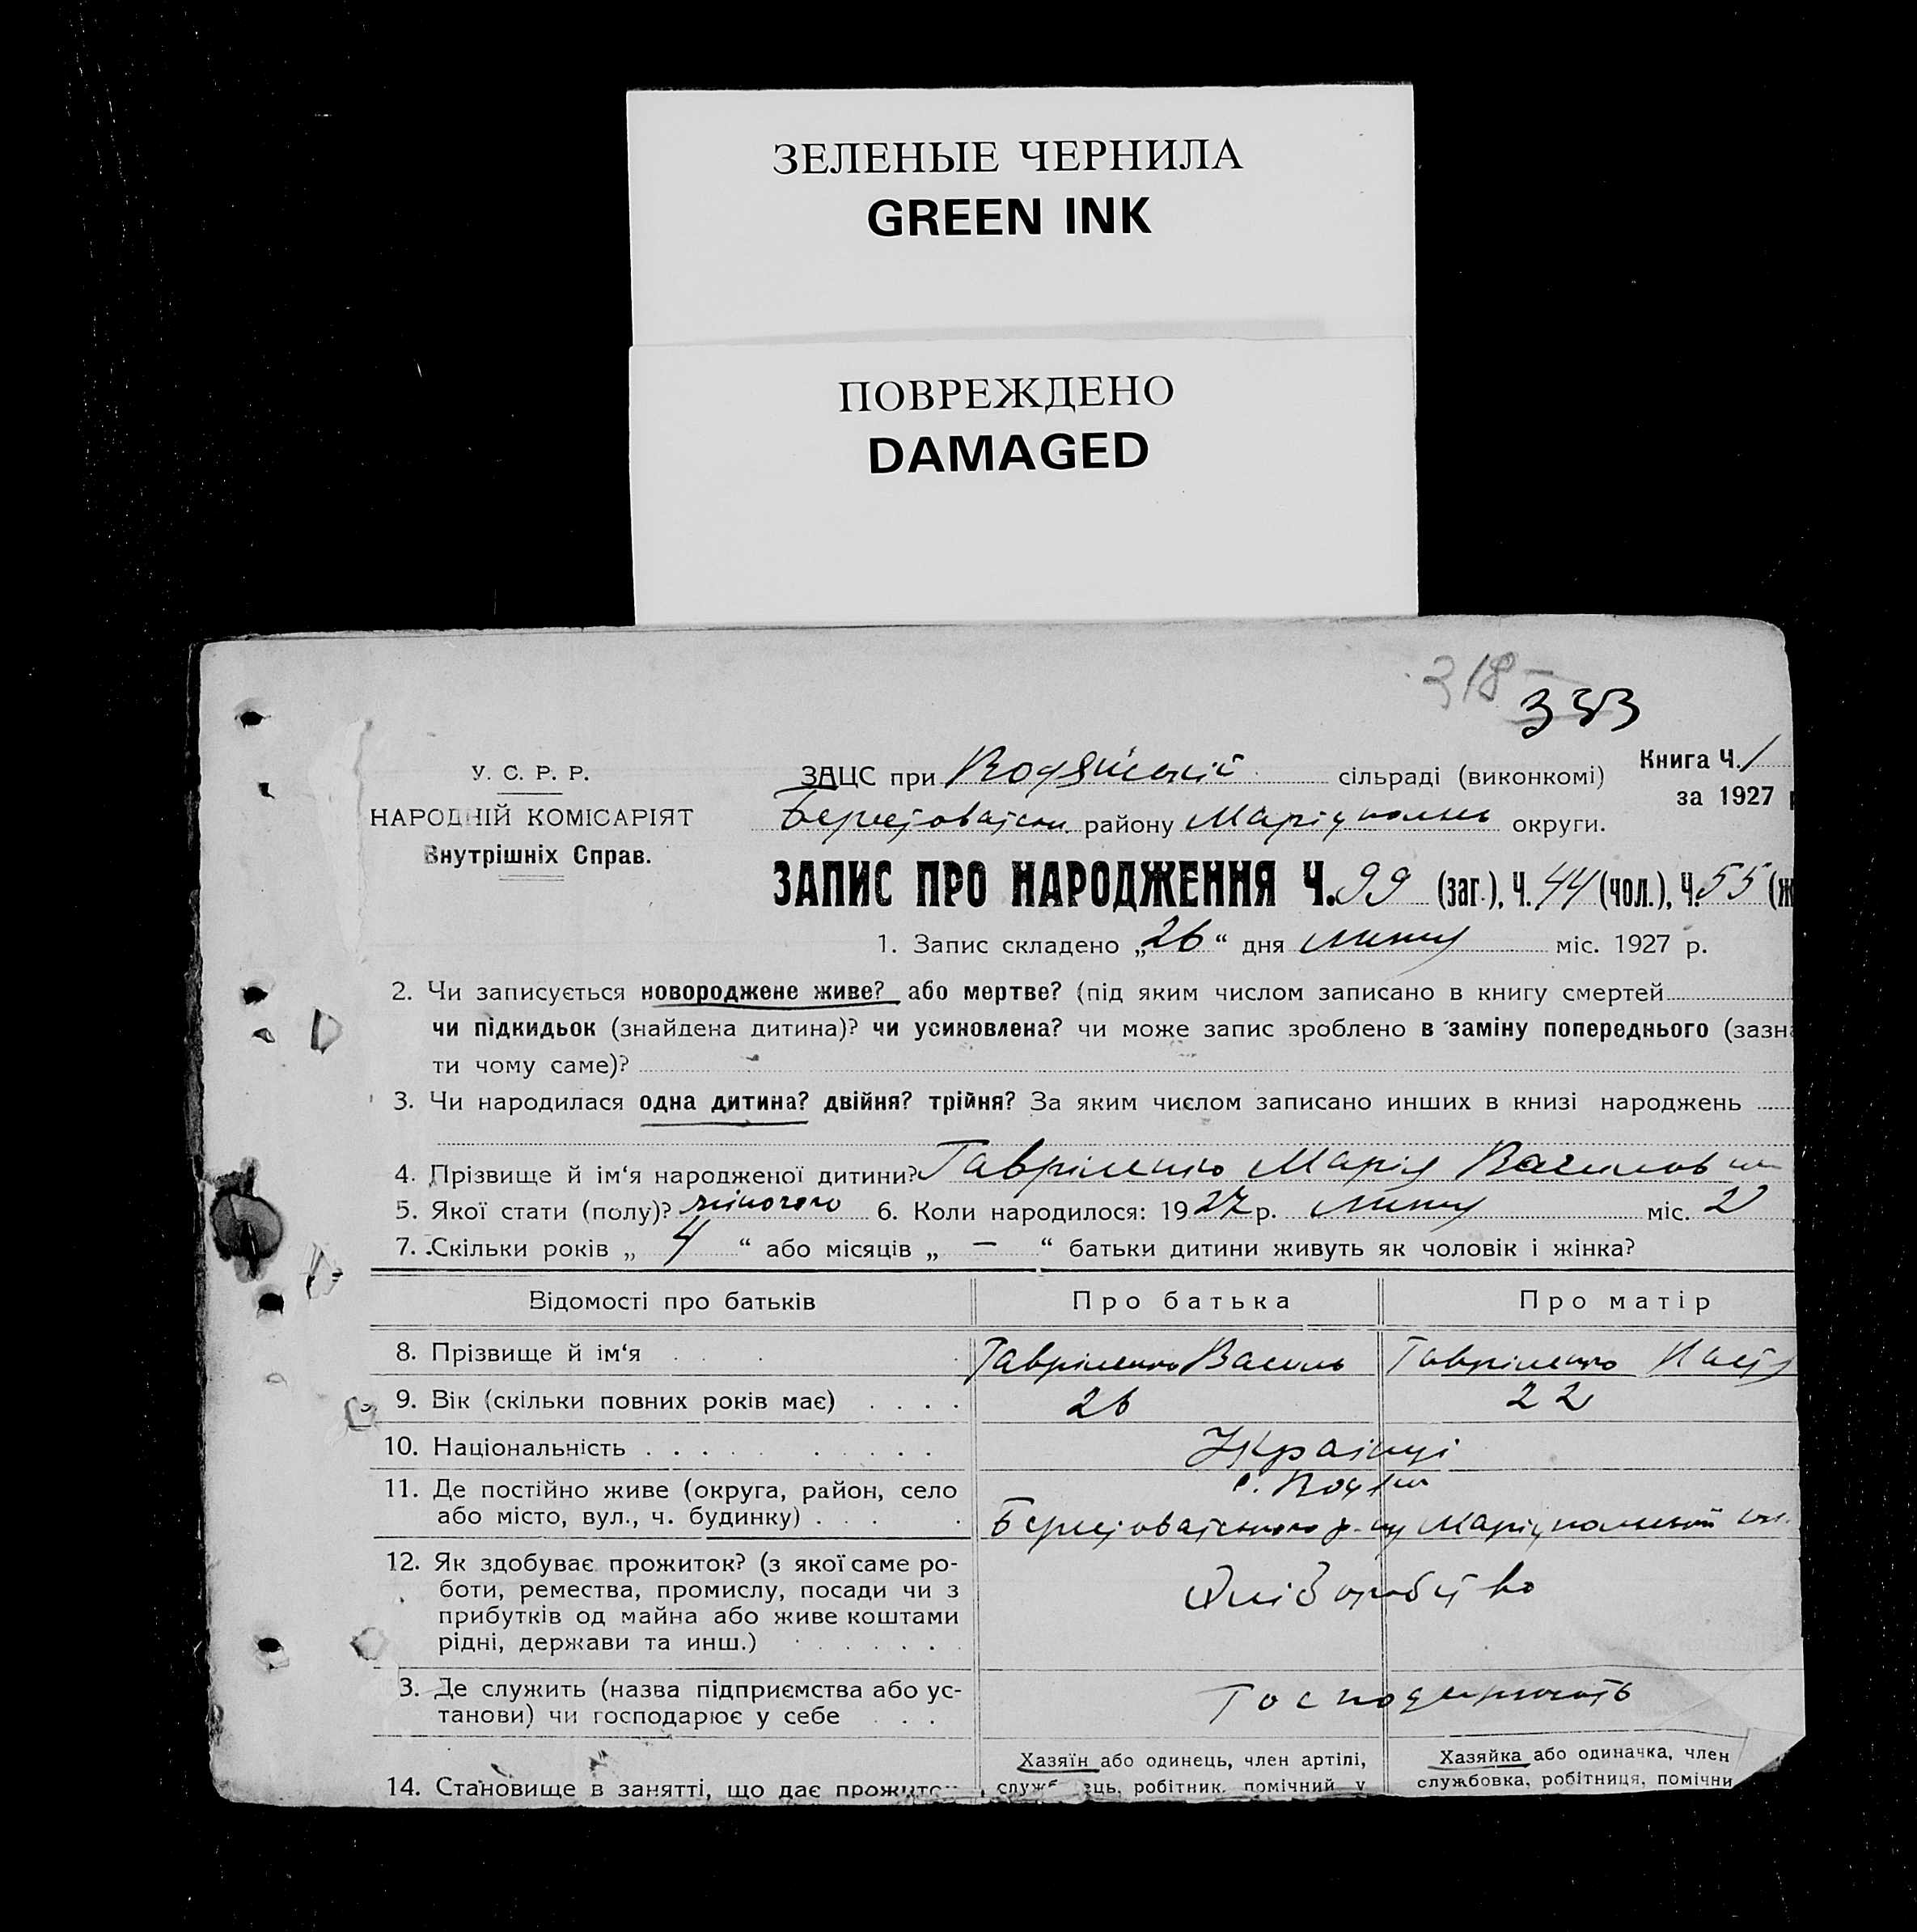 ЗЕЛЕНЫЕ ЧЕРНИЛА
GREEN INK
ПОВРЕЖДЕНО
DAMAGED
318
333
У. С. Р. Р.
НАРОДНІЙ КОМІСАРІЯТ
Внутрішніх Справ.
ЗАЦС при Водянській сільраді (виконкомі)
Книга Ч. 1
за 1927
району Маріупольськ округи.
ЗАПИС ПРО НАРОДЖЕННЯ Ч. 99 (заг.), Ч. 44 (чол.), Ч. 55 (ж
1. Запис складено „26“ дня липня міс. 1927 р.
2. Чи записується новороджене живе? або мертве? (під яким числом записано в книгу смертей
чи підкидьок (знайдена дитина)? чи усиновлена? чи може запис зроблено в заміну попереднього (зазна
ти чому саме)?
3. Чи народилася одна дитина? двійня? трійня? За яким числом записано инших в книзі народжень
4. Прізвище й ім‘я народженої дитини? Гавріленко Марія
5. Якої стати (полу)? жіночого 6. Коли народилося: 1927 р. липня міс. 2
7. Скільки років „ 4 “ або місяців „ — “ батьки дитини живуть як чоловік і жінка?
Відомості про батьків
Про батька
Про матір
8. Прізвище й ім‘я
Гавріленко Василь
Гавріленко
9. Вік (скільки повних років має)
26
22
10. Національність
Українці
11. Де постійно живе (округа, район, село
або місто, вул., ч. будинку)
12. Як здобуває прожиток? (з якої саме ро-
боти, ремества, промислу, посади чи з
прибутків од майна або живе коштами
рідні, держави та инш.)
Хліборобство
3. Де служить (назва підприємства або ус-
танови) чи господарює у себе
Господарюють
14. Становище в занятті, що дає прожиток
Хазяїн або одинець, член артілі,
робітник, помічний у
Хазяйка або одиначка, член
службовка, робітниця, помічни